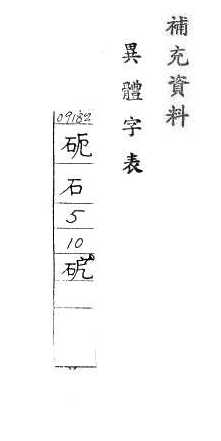 補充資料
異體字表
09182
砈
石
5
10